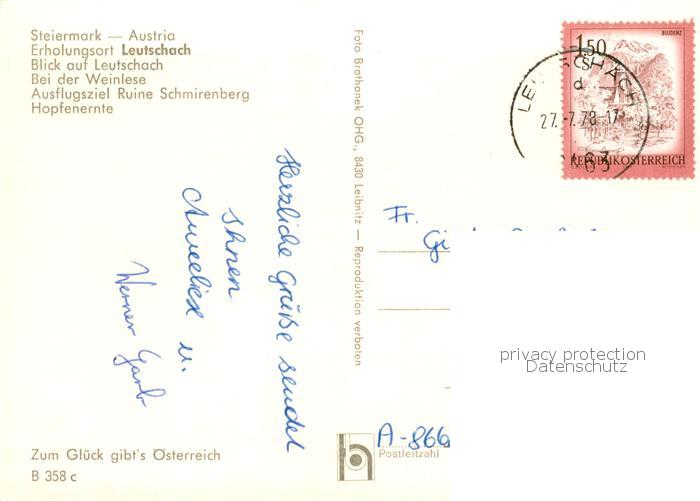 Steiermark — Austria
Erholungsort Leutschach
Blick auf Leutschach
Bei der Weinlese
Ausflugsziel Ruine Schmirenberg
Hopfenernte
Herzliche Grüße sendet
Ihnen
Anneliese u.
Werner
Zum Glück gibt's Österreich
B 358 c
Foto Brothanek OHG., 8430 Leibnitz — Reproduktion verboten
BLUDENZ
1.50
S
d
27.-7.78-17
REPUBLIK ÖSTERREICH
Fr.
privacy protection
Datenschutz
A-866
Postleitzahl